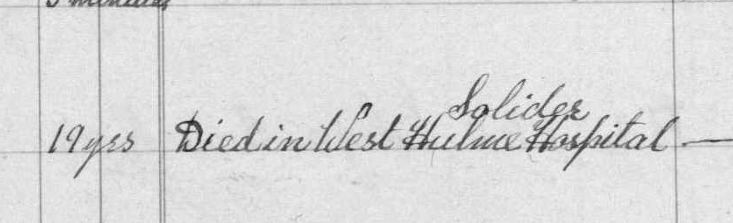 5 minutes
Solider
19 yrs Died in West Hulme Hospital —